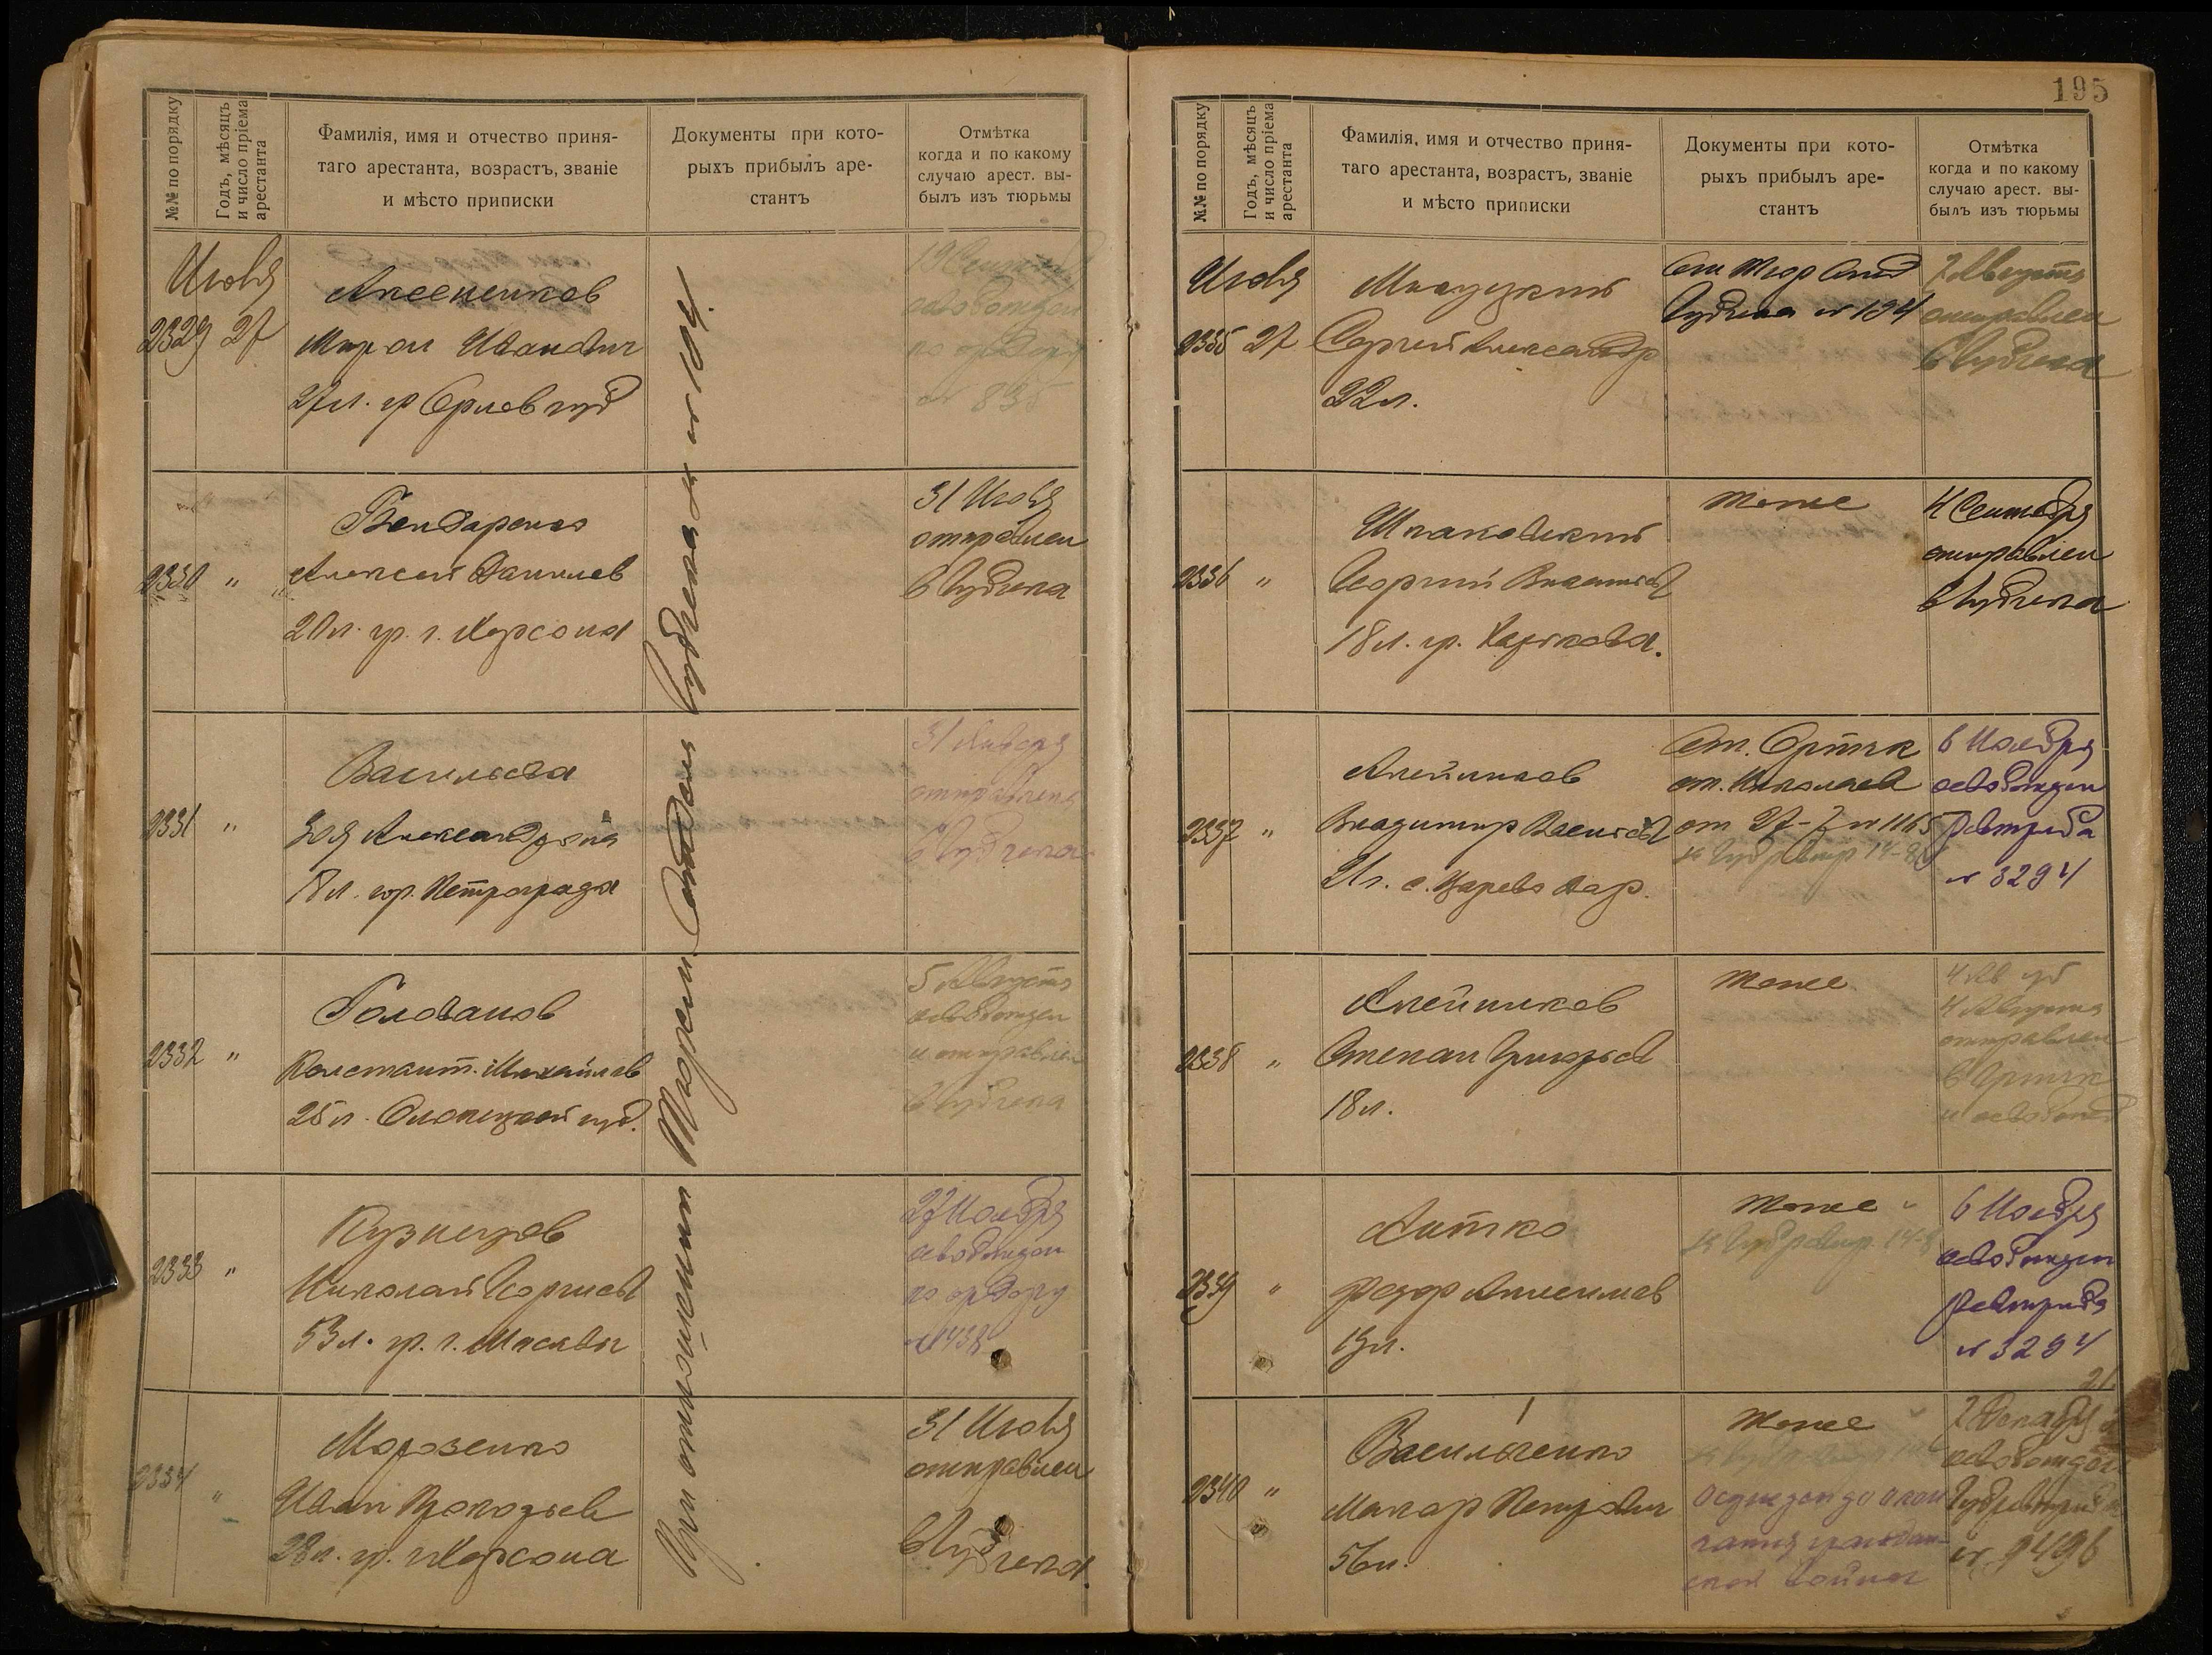 №№ по порядку
Годъ, мѣсяцъ
и число пріема
арестанта
Фамилія, имя и отчество приня-
таго арестанта, возрастъ, званіе
и мѣсто приписки
Документы при кото-
рыхъ прибылъ аре-
стантъ
Отмѣтка
когда и по какому
случаю арест. вы-
былъ изъ тюрьмы
Июля
2329 27
Аксененков
Мирон Иванович
27 л. гр Орлов губ
При отношении Тюрем
19 Сентяб
освобожден
по ордеру
№ 835
2330 "
Бондаренко
Алексей Данилов
20 л. гр. г. Херсона
31 Июля
отправлен
в Губчека
2331 "
Васильева
Зоя Александровна
18 л. гор. Петрограда
31 Января
отправлена
в Губчека
2332 "
Голованов
Константи. Михайлов
25 л. Олонецкой губ.
5 Августа
освобожден
и отправлен
в Губчека
2333 "
Кузнецов
Николай Георгиев
53 л. гр. г. Москвы
27 Ноября
освобожден
по ордеру
2334 "
Морозенко
Иван Прокофьев
28 л. гр. г Херсона
31 Июля
отправлен
в Губчека.
195
№№ по порядку
Годъ, мѣсяцъ
и число пріема
арестанта
Фамилія, имя и отчество приня-
таго арестанта, возрастъ, званіе
и мѣсто приписки
Документы при кото-
рыхъ прибылъ аре-
стантъ
Отмѣтка
когда и по какому
случаю арест. вы-
былъ изъ тюрьмы
Июля
2335 27
Сергей Александр
22 л.
Губчека № 194
7 Августа
отправлен
в Губчека
2336 "
Шпаковский
Георгий
18 л. гр. Харькова.
тоже
4 Сентября
отправлен
в Губчека
2337 "
Алейников
Владимир Васильев
21 л. с. Царево Дар.
от. Николаев
от 27-7 № 1165
6 Ноября
освобожден
Ревтриба
№ 3294
2338 "
Алейников
Степан Григорьев
18 л.
тоже
4 Августа
отправлен
и освобожд
2339 "
Литко
Федор Анисимов
19 л.
тоже "
6 Ноября
освобожден
Ревтриба
№ 3294
2340 "
Васильченко
Макар Петрович
56 л.
тоже
Осужден до окон
чания граждан-
ской войны
2 Декабря
освобожден
Губревтриб
№ 9496